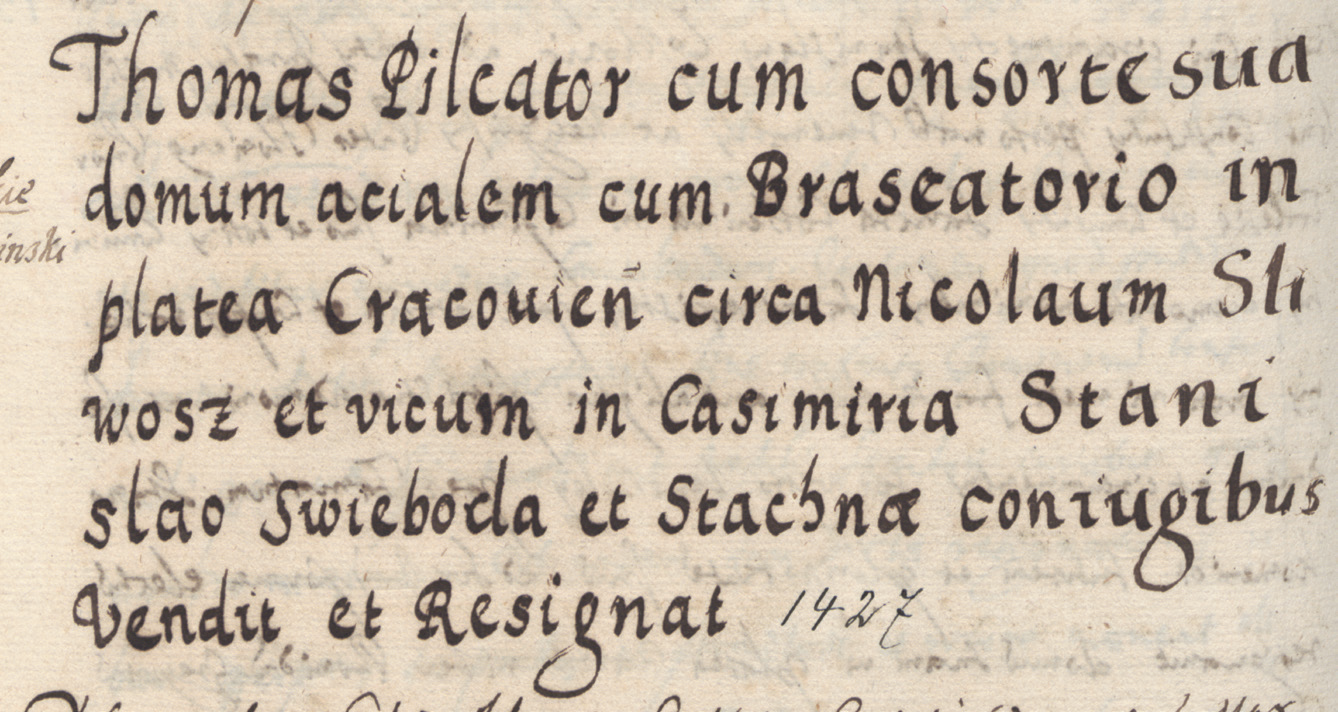 Thomas Pileator cum consorte sua
domum acialem cum Braseatorio in
platea Cracouien̄ circa Nicolaum Sli
wosz et vicum in Casimiria Stani
slao Swieboda et Stachnæ coniugibus
Vendit et Resignat 1427
inski